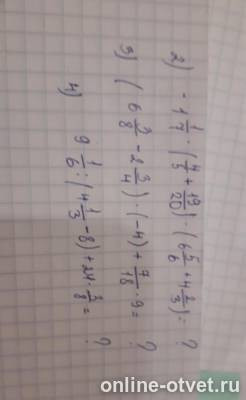 2) - 1 1/7 · (4/5 + 19/20) · (6 5/6 + 4 2/3) = ?
3) (6 3/8 - 2 3/4) · (-4) + 7/18 · 9 = ?
4) 9 1/6 : (4 1/3 - 8) + 24 · 3/8 = ?
online-otvet.ru